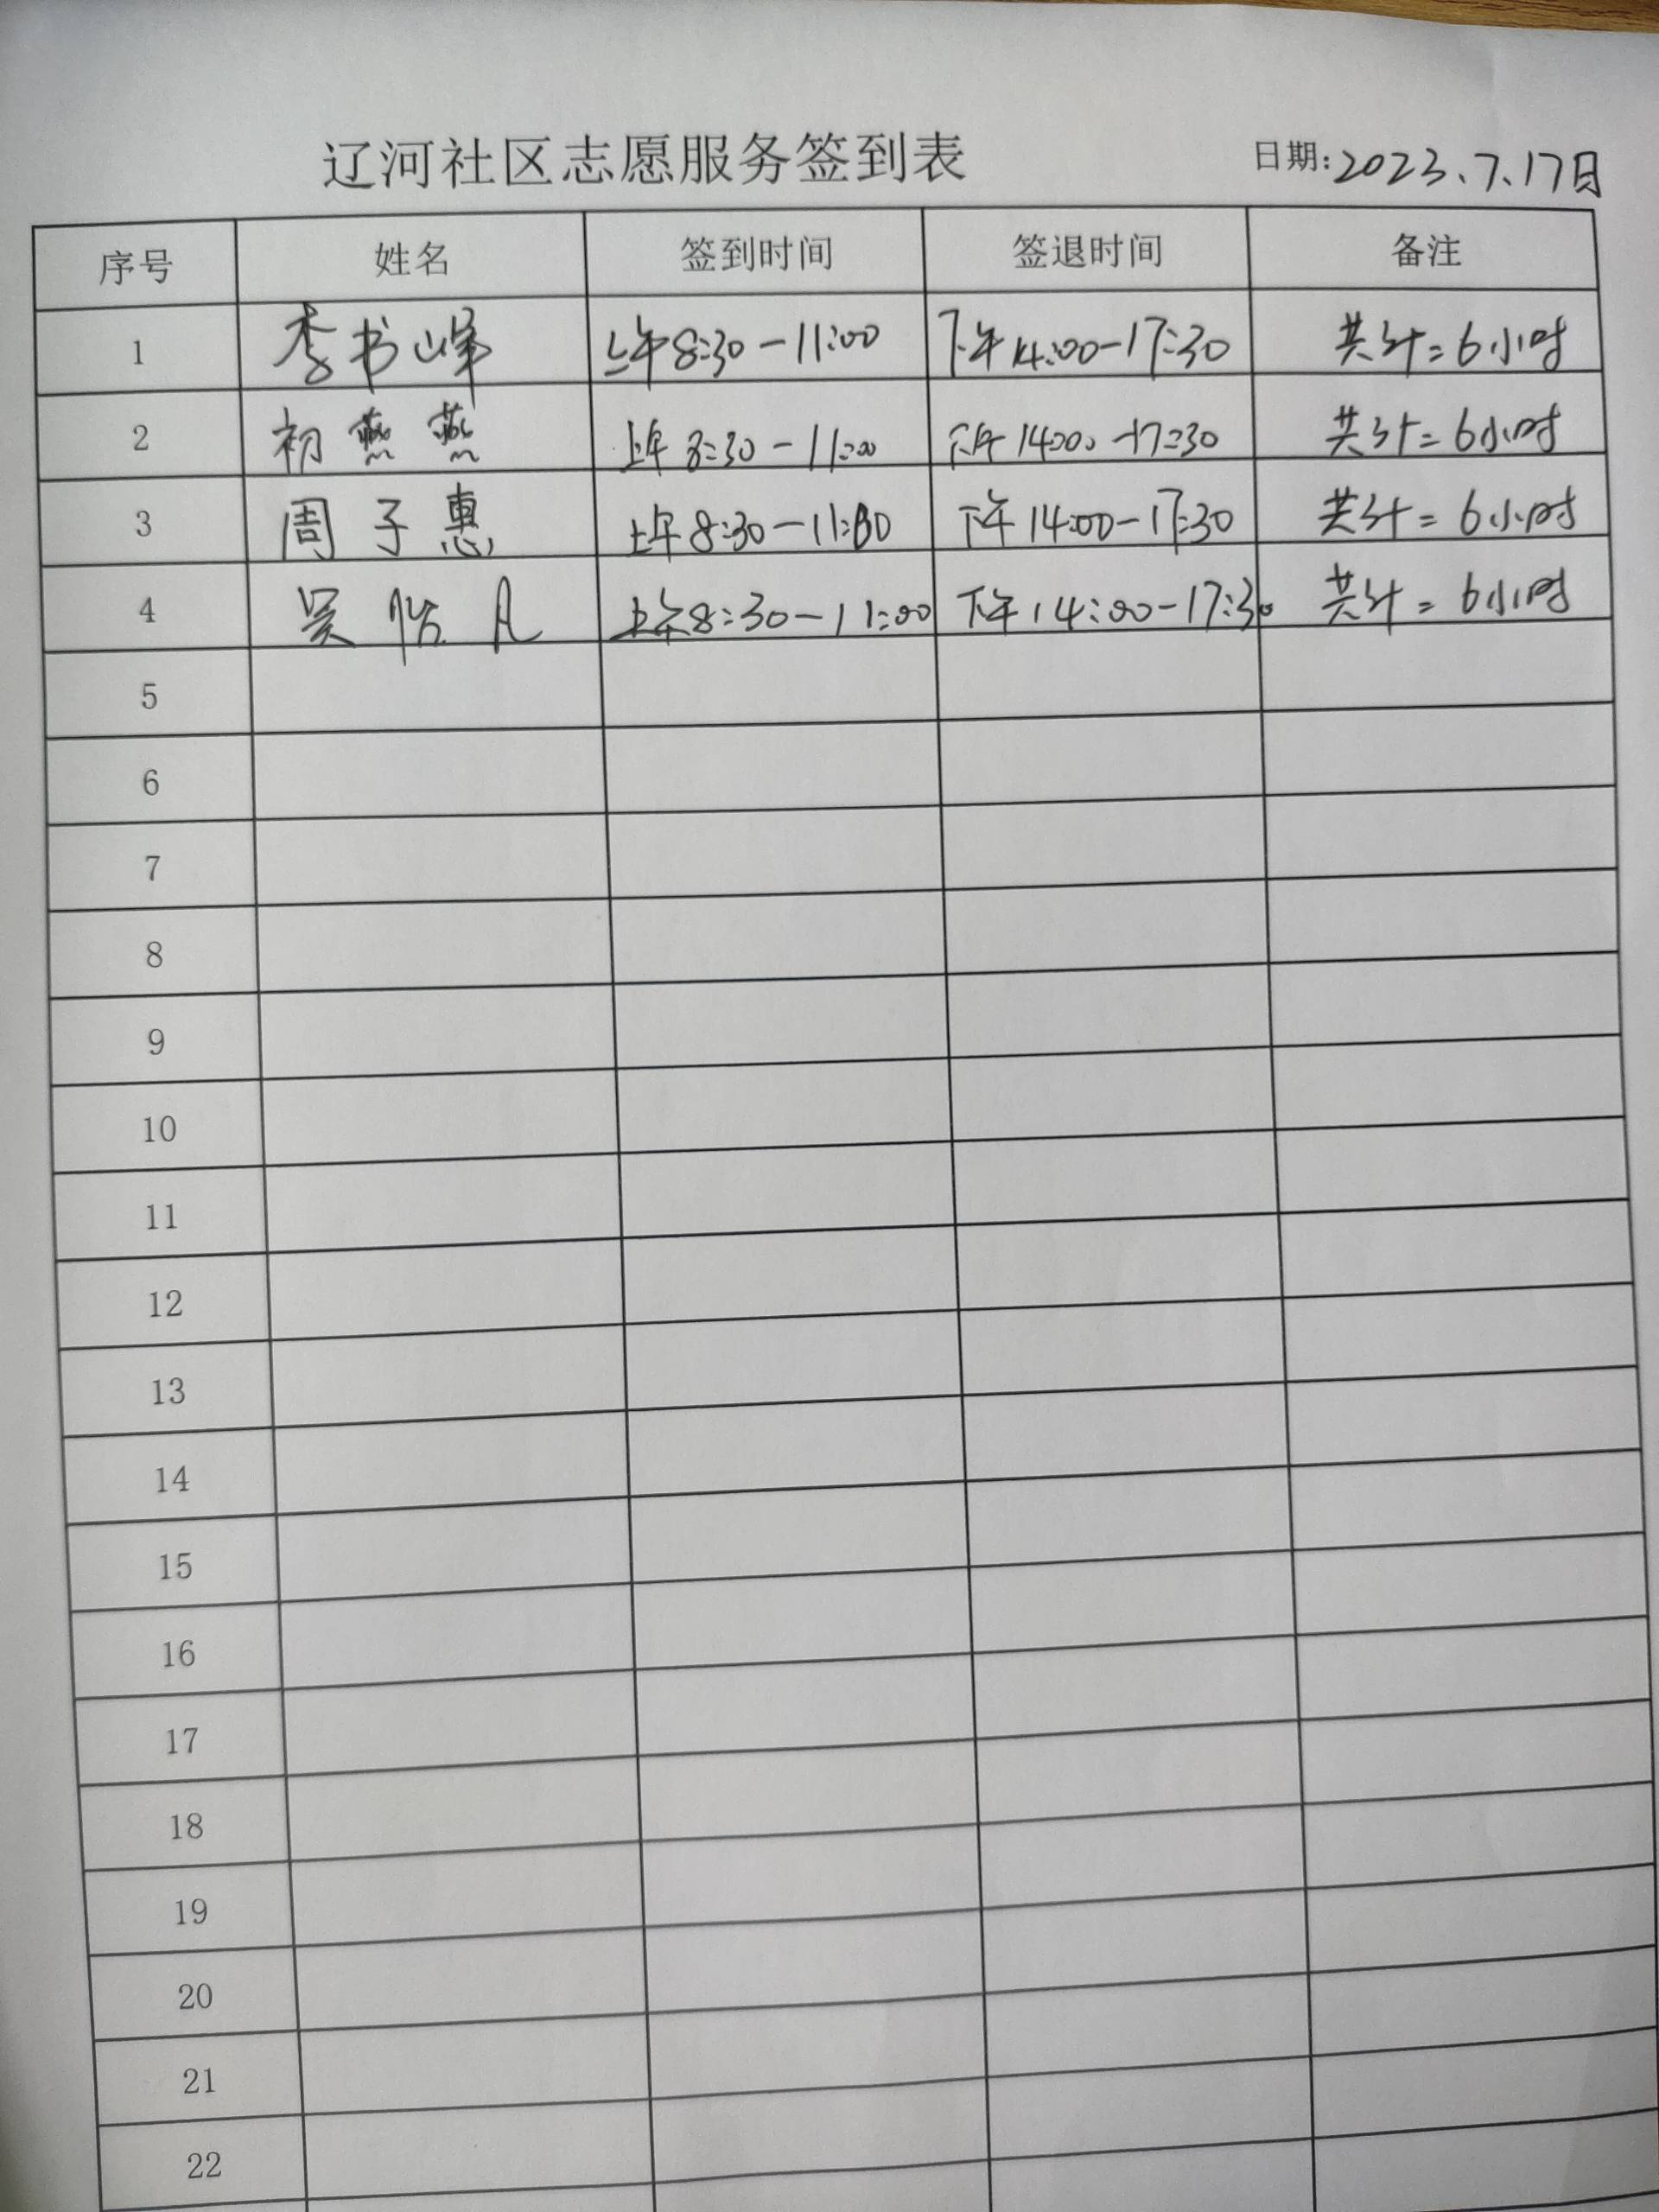 辽河社区志愿服务签到表 日期:2023.7.17日
序号 姓名 签到时间 签退时间 备注
1 李书峰 上午8:30-11:00 下午14:00-17:30 共计=6小时
2 初燕燕 上午8:30-11:00 下午14:00-17:30 共计=6小时
3 周子惠 上午8:30-11:00 下午14:00-17:30 共计=6小时
4 吴怡凡 上午8:30-11:00 下午14:00-17:30 共计=6小时
5
6
7
8
9
10
11
12
13
14
15
16
17
18
19
20
21
22